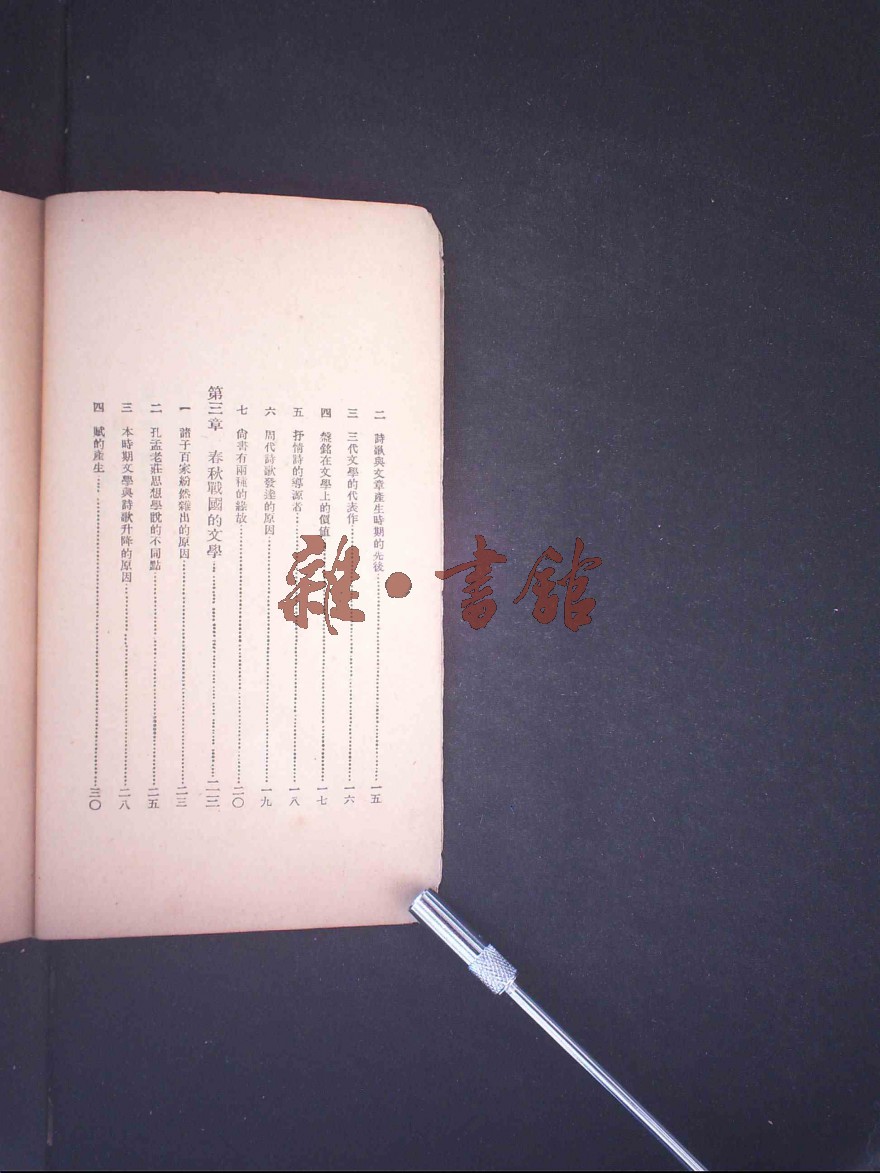 二　詩歌與文章產生時期的先後……一五
三　三代文學的代表作……一六
四　盤銘在文學上的價值……一七
五　抒情詩的導源者……一八
六　周代詩歌發達的原因……一九
七　尚書有兩種的緣故……二〇
第三章　春秋戰國的文學……二三
一　諸子百家紛然雜出的原因……二三
二　孔孟老莊思想學說的不同點……二五
三　本時期文學與詩歌升降的原因……二八
四　賦的產生……三〇
雜·書館